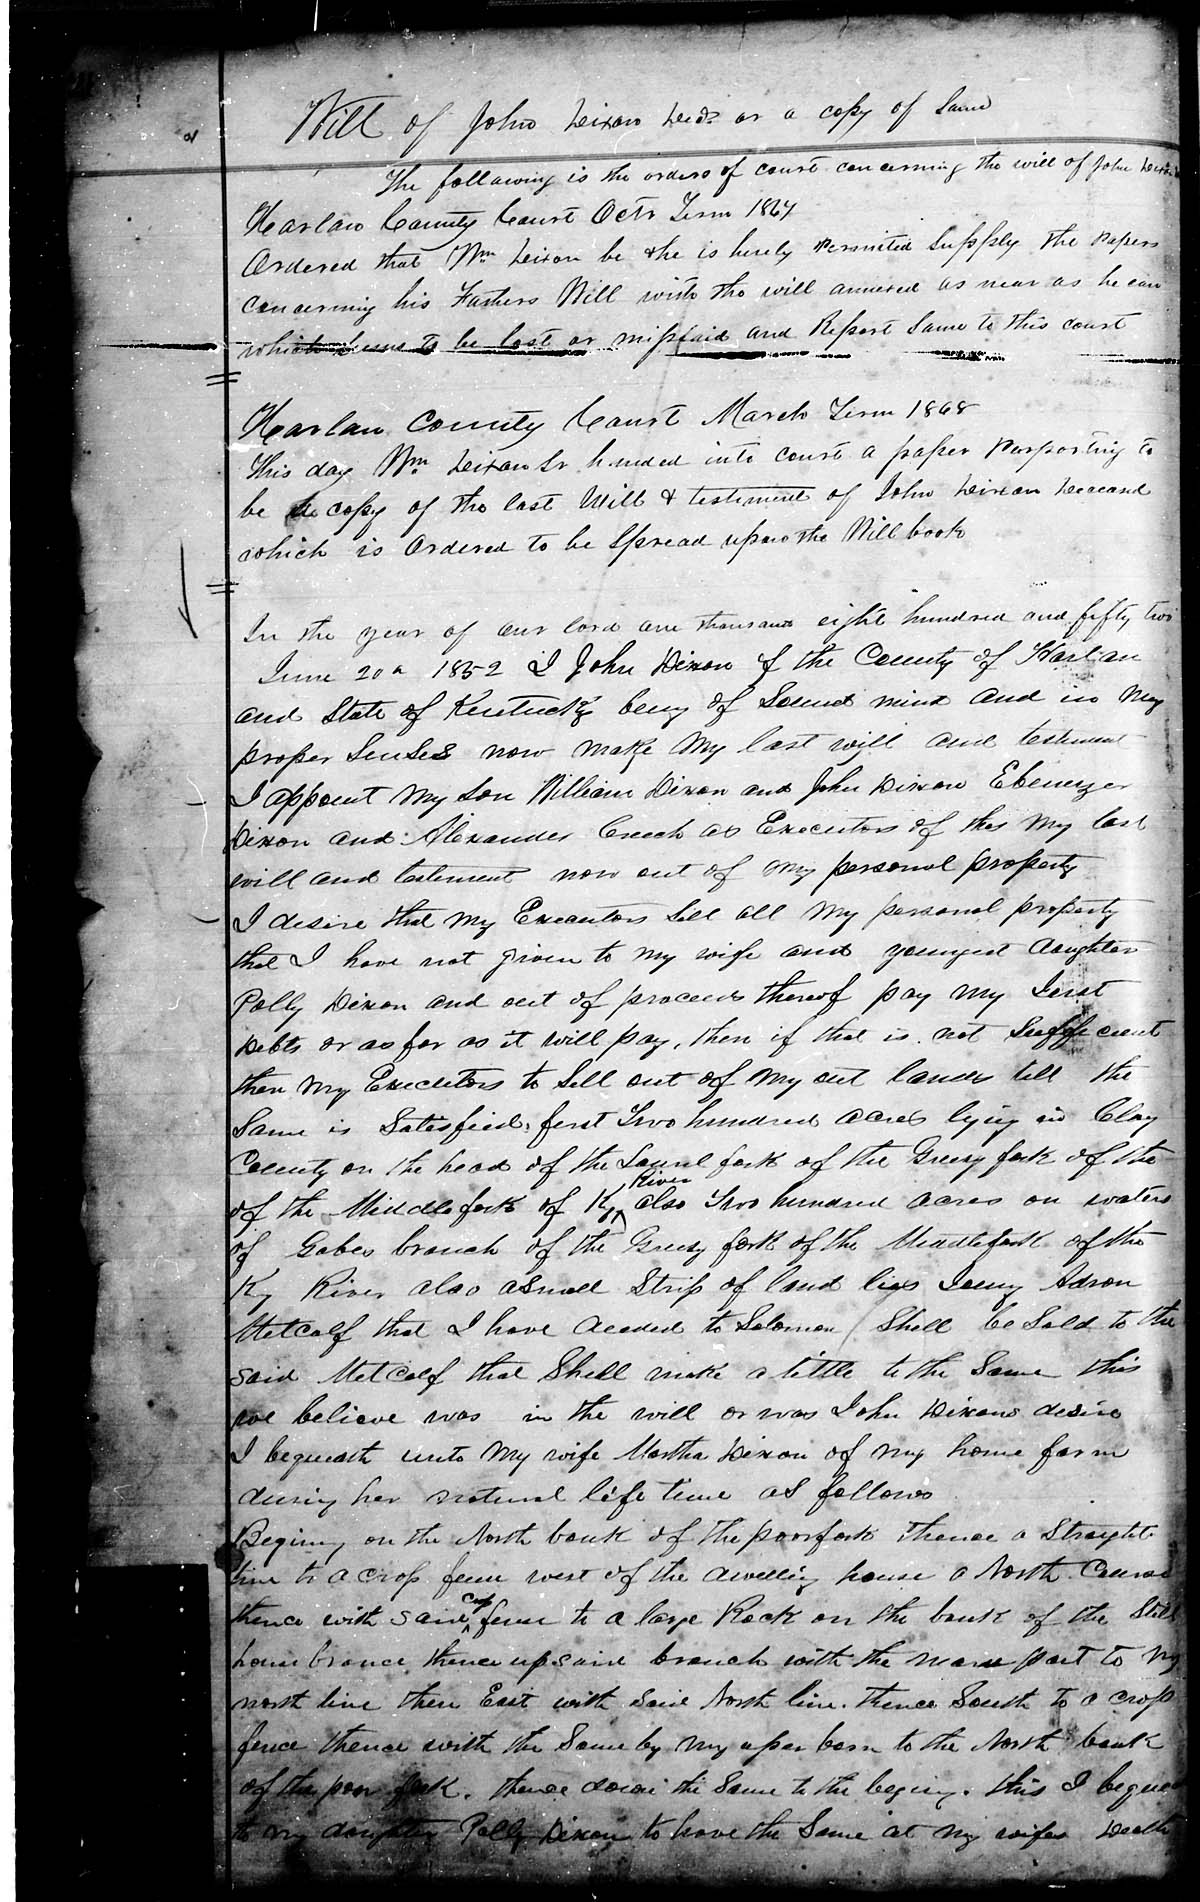 Will of John Dixon Decd or a copy of Same
The following is the orders of court concerning the will of John Dixon
Harlan County Court Octr Term 1867
Ordered that Wm Dixon be & he is herely Permited Supply the Papers
concerning his Fathers Will with the will annexed as near as he can
which seems to be lost or misplaid and Report Same to this court
Harlan County Court March Term 1868
This day Wm Dixon Sr handed into court a paper Purporting to
be the copy of the last Will & testiment of John Dixon Deceasd
which is Ordered to be Spread upon the Will book
In the year of our lord one thousand eight hundred and fifty two
June 20th 1852 I John Dixon of the County of Harlan
and State of Kentucky being of Sound mind and in my
proper Senses now make my last will and testiment
I appoint my Son William Dixon and John Dixon Ebenezer
Dixon and Alexander Creech as Executors of this my last
will and testiment now out of my personal property
I desire that my Executors Sell all my personal property
that I have not given to my wife and youngest daughter
Polly Dixon and out of proceeds thereof pay my Just
Debts or as far as it will pay, then if that is not Sufficient
then my Executors to Sell out of my out lands till the
Same is Satisfied, first Two hundred acres lying in Clay
County on the head of the Laurel fork of the Greesy fork of the
of the Middle fork of Ky River also Two hundred acres on waters
of Gabes branch of the Greesy fork of the Middle fork of the
Ky River also a Small Strip of land lies Joing Adron
Metcalf that I have deeded to Solomon Shell be Sold to the
said Metcalf that Shell make a tittle to the Same this
we believe was in the will or was John Dixons desire
I bequeath unto my wife Martha Dixon of my home farm
during her natural life time as follows
Begining on the North bank of the poorfork thence a Straight
line to a crop fence west of the dwelling house a North Course
thence with Same crop fence to a large Rock on the bank of the Still
house brance thence up said branch with the main part to my
north line then East with said North line. thence South to a crop
fence thence with the Same by my uper barn to the North bank
of the poor fork. thence down the Same to the begining. this I beque
to my daughter Polly Dixon to have the Same at my wifes Death